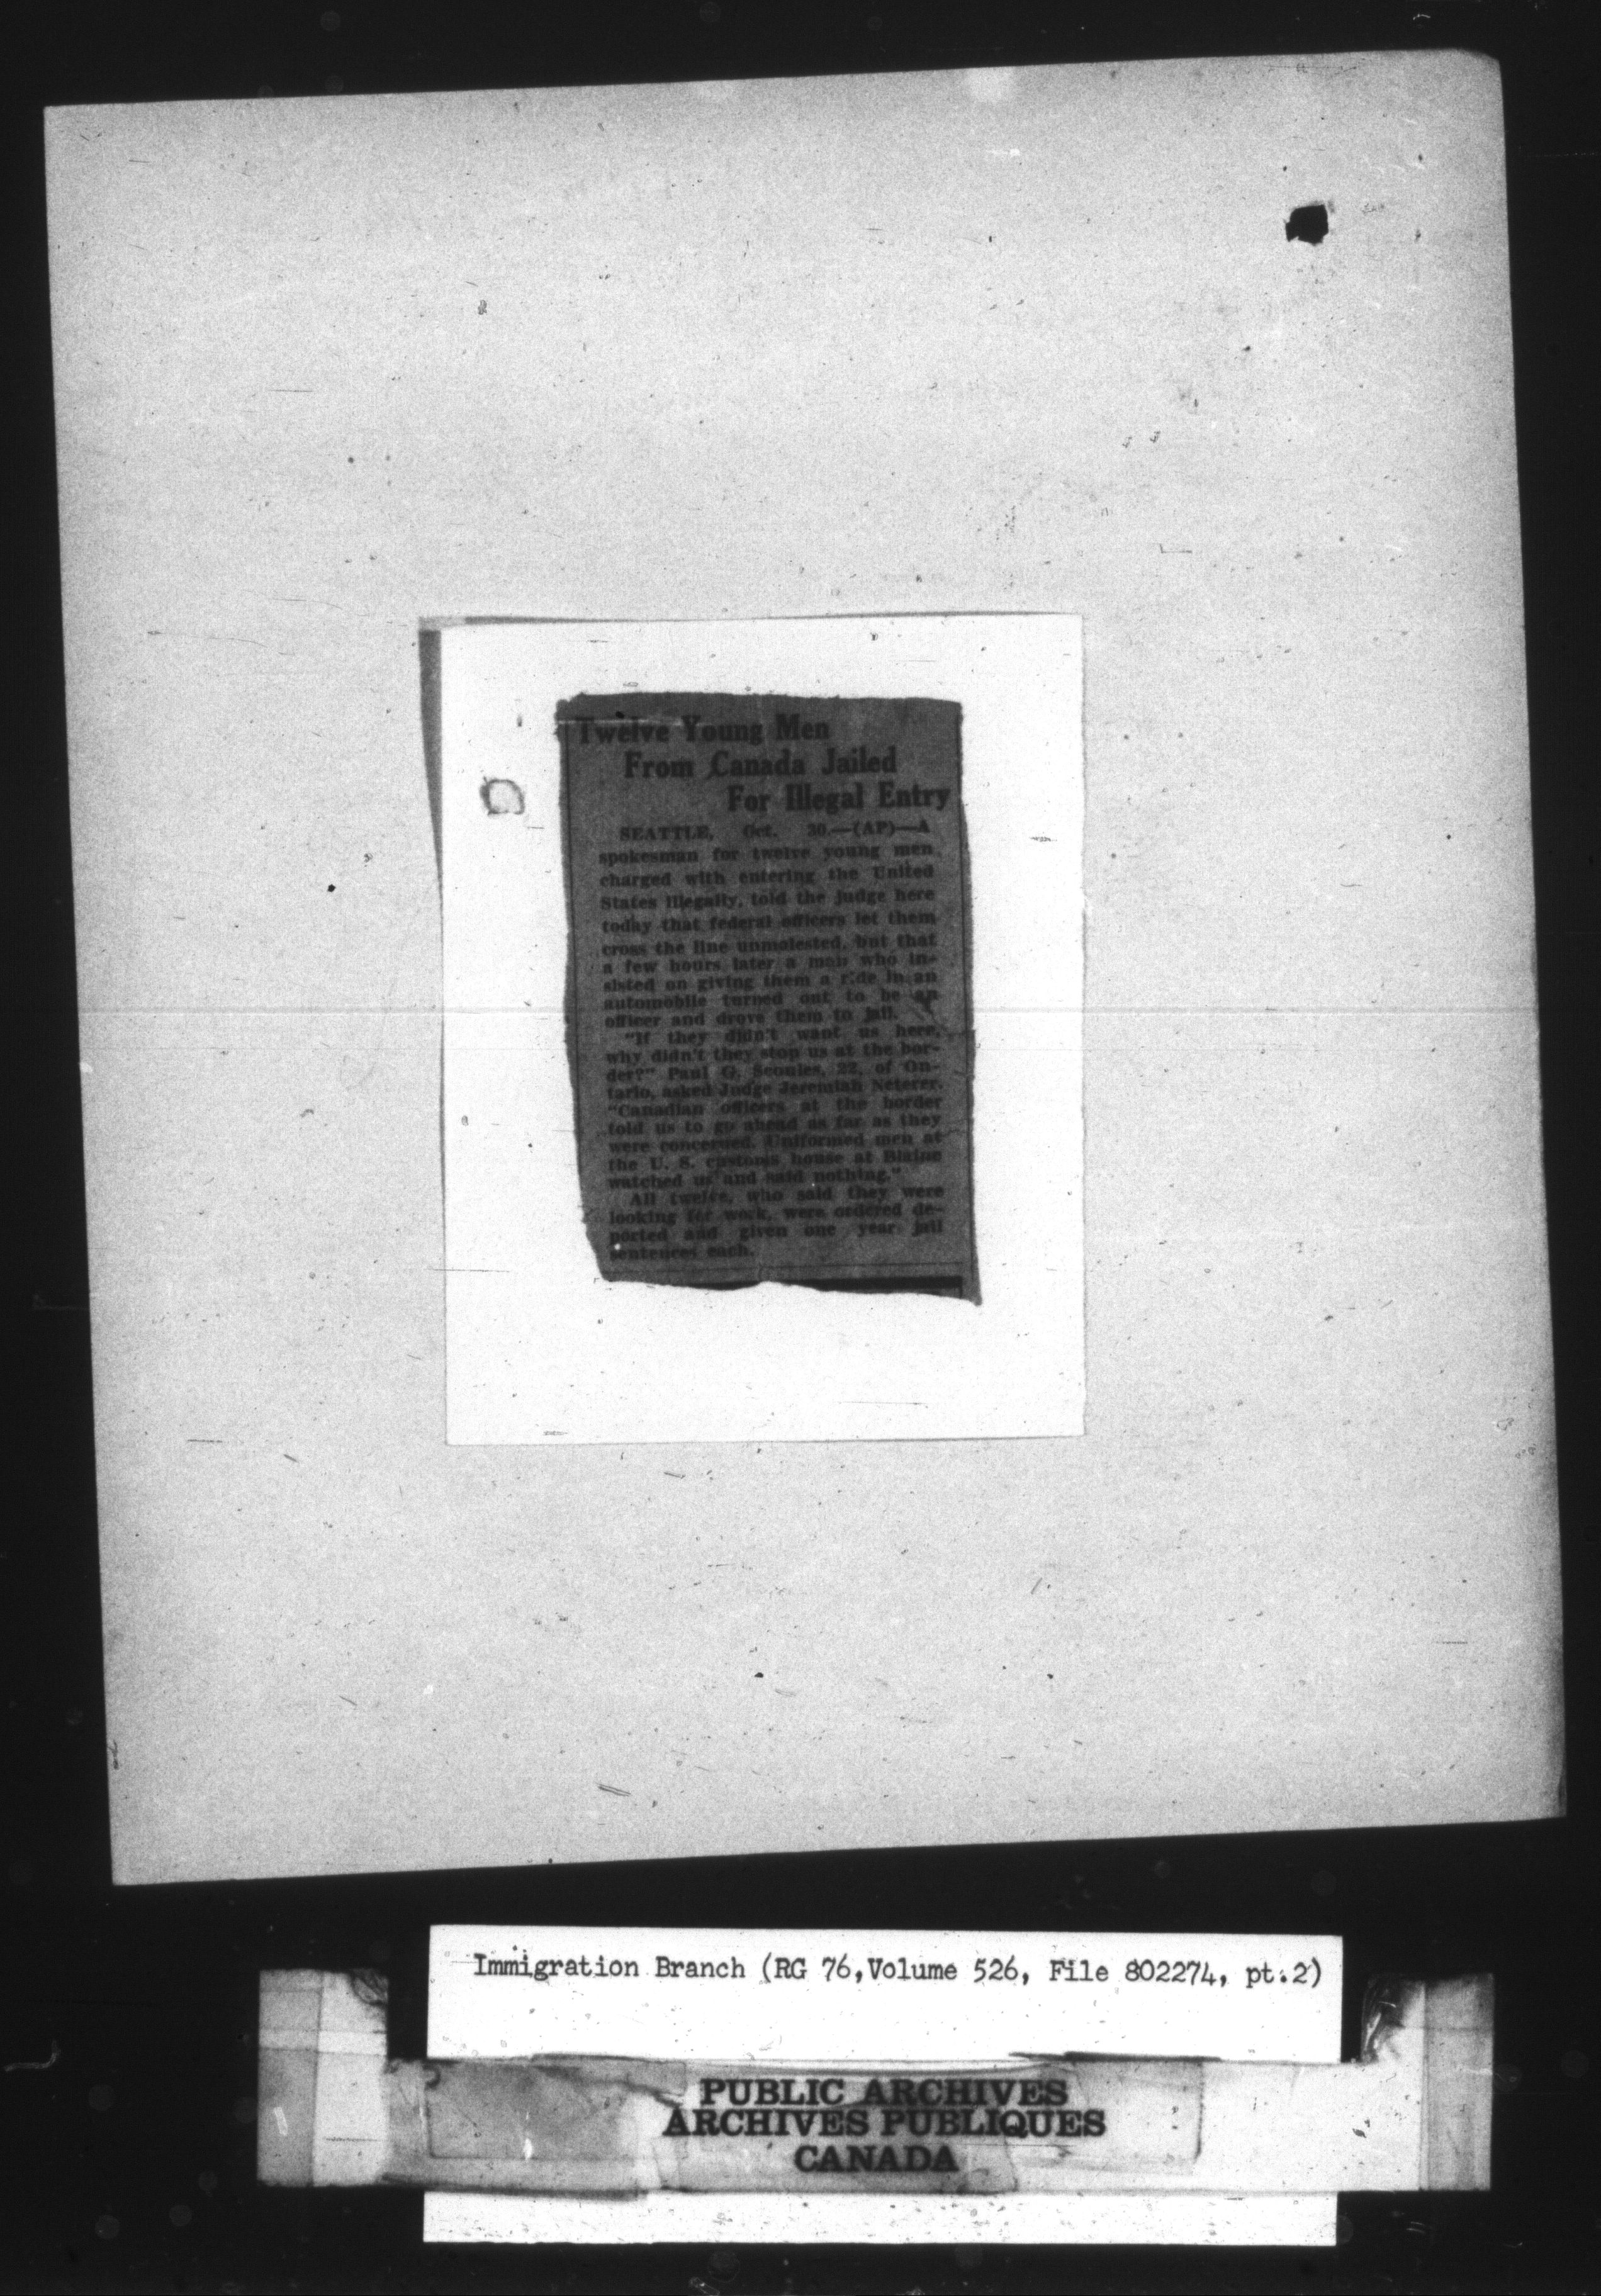 Twelve Young Men
From Canada Jailed
For Illegal Entry
SEATTLE, Oct. 30.—(AP)—A
spokesman for twelve young men
charged with entering the United
States illegally, told the judge here
today that federal officers let them
cross the line unmolested, but that
a few hours later a man who in-
sisted on giving them a ride in an
automobile turned out to be an
officer and drove them to jail.
"If they didn't want us here,
why didn't they stop us at the bor-
der?" Paul G. 22, of On-
tario, asked Judge Jeremiah Neterer.
"Canadian officers at the border
told us to go ahead as far as they
were concerned. Uniformed men at
the U. S. customs house at Blaine
watched us and said nothing."
All twelve, who said they were
looking for work, were ordered de-
ported and given one year jail
sentences each.
Immigration Branch (RG 76,Volume 526, File 802274, pt.2)
PUBLIC ARCHIVES
ARCHIVES PUBLIQUES
CANADA